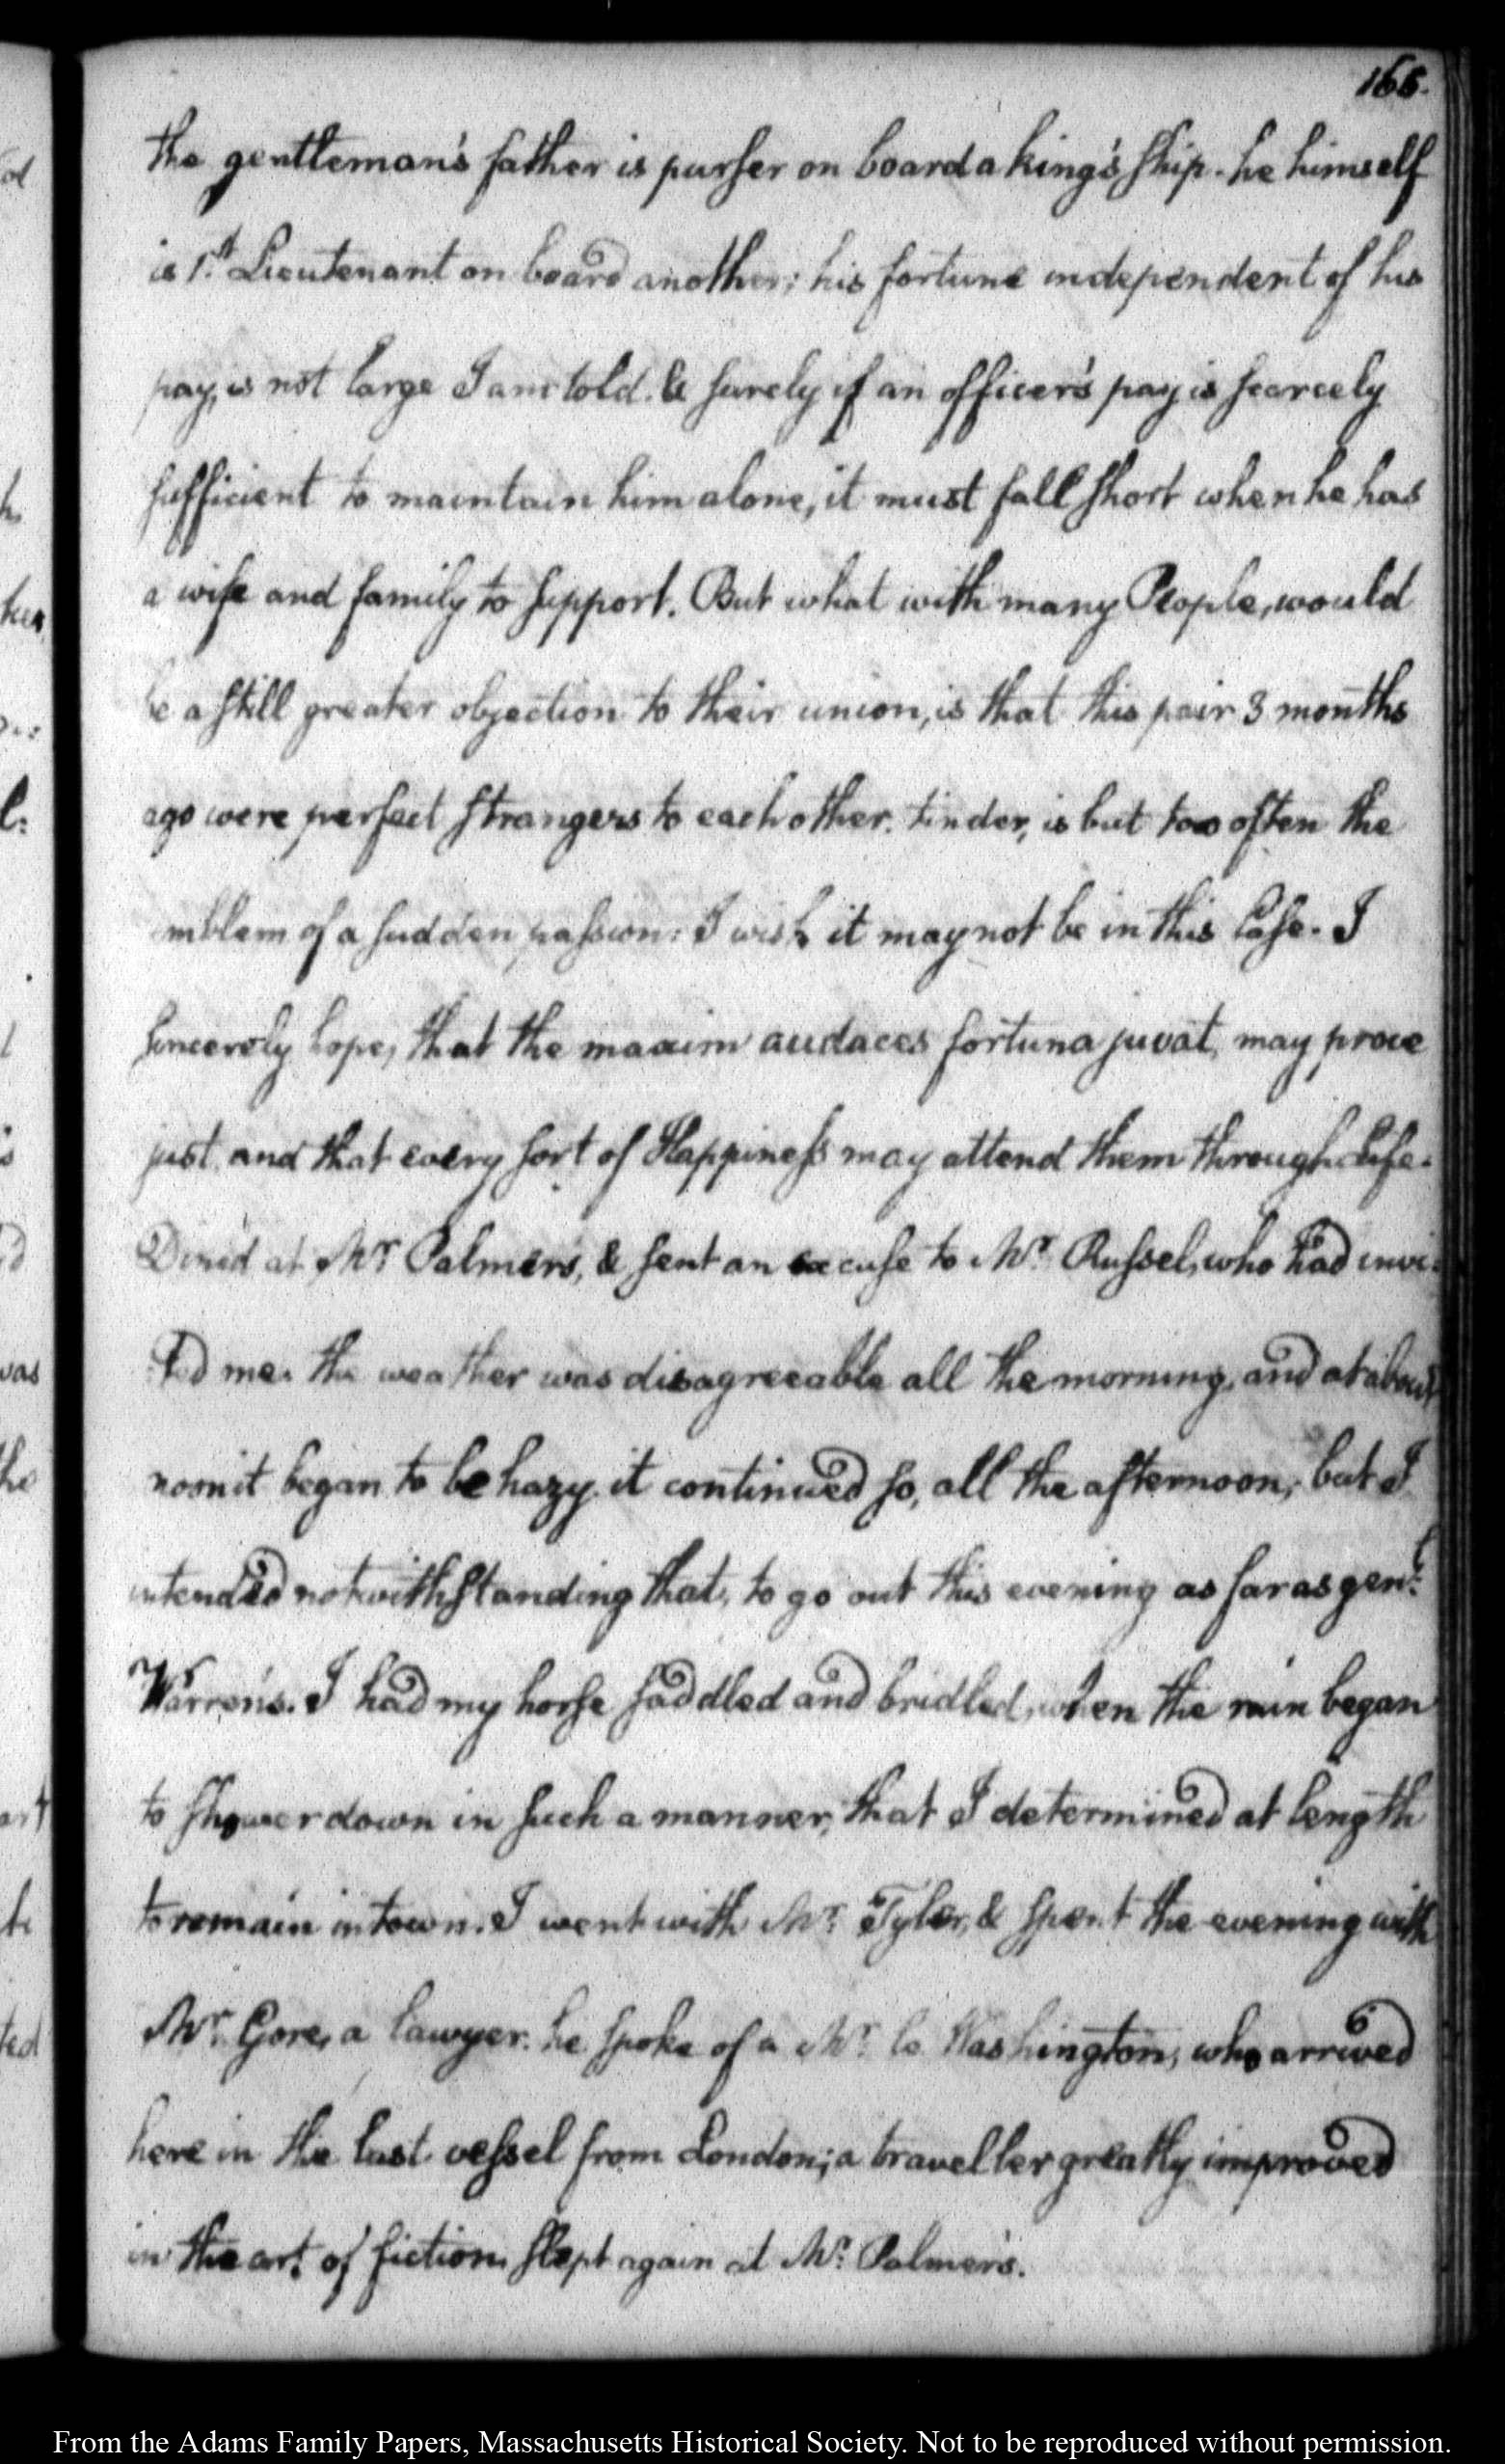 165.
the gentleman's father is purser on board a king's ship. he himself
is 1st Lieutenant on board another; his fortune independent of his
pay, is not large I am told. & surely if an officer's pay is scarcely
sufficient to maintain him alone, it must fall short when he has
a wife and family to support. But what with many People, would
be a still greater objection to their union, is that this pair 3 months
ago were perfect strangers to each other. tinder, is but too often the
emblem of a sudden passion: I wish it may not be in this Case. I
sincerely hope, that the maxim audaces fortuna juvat, may prove
just, and that every sort of Happiness may attend them through Life.
Din'd at Mr Palmer's, & sent an excuse to Mr. Russel, who had invi-
ted me. the weather was disagreeable all the morning, and at about
noon it began to be hazy. it continued so, all the afternoon; but I
intended notwithstanding that, to go out this evening as far as genl.
Warren's. I had my horse saddled and bridled, when the rain began
to shower down in such a manner, that I determined at length
to remain in town. I went with Mr. Tyler, & spent the evening with
Mr. Gore, a lawyer. he spoke of a Mr. Washington, who arrived
here in the last vessel from London; a traveller greatly improved
in the art of fiction. Slept again at Mr. Palmer's.
From the Adams Family Papers, Massachusetts Historical Society. Not to be reproduced without permission.